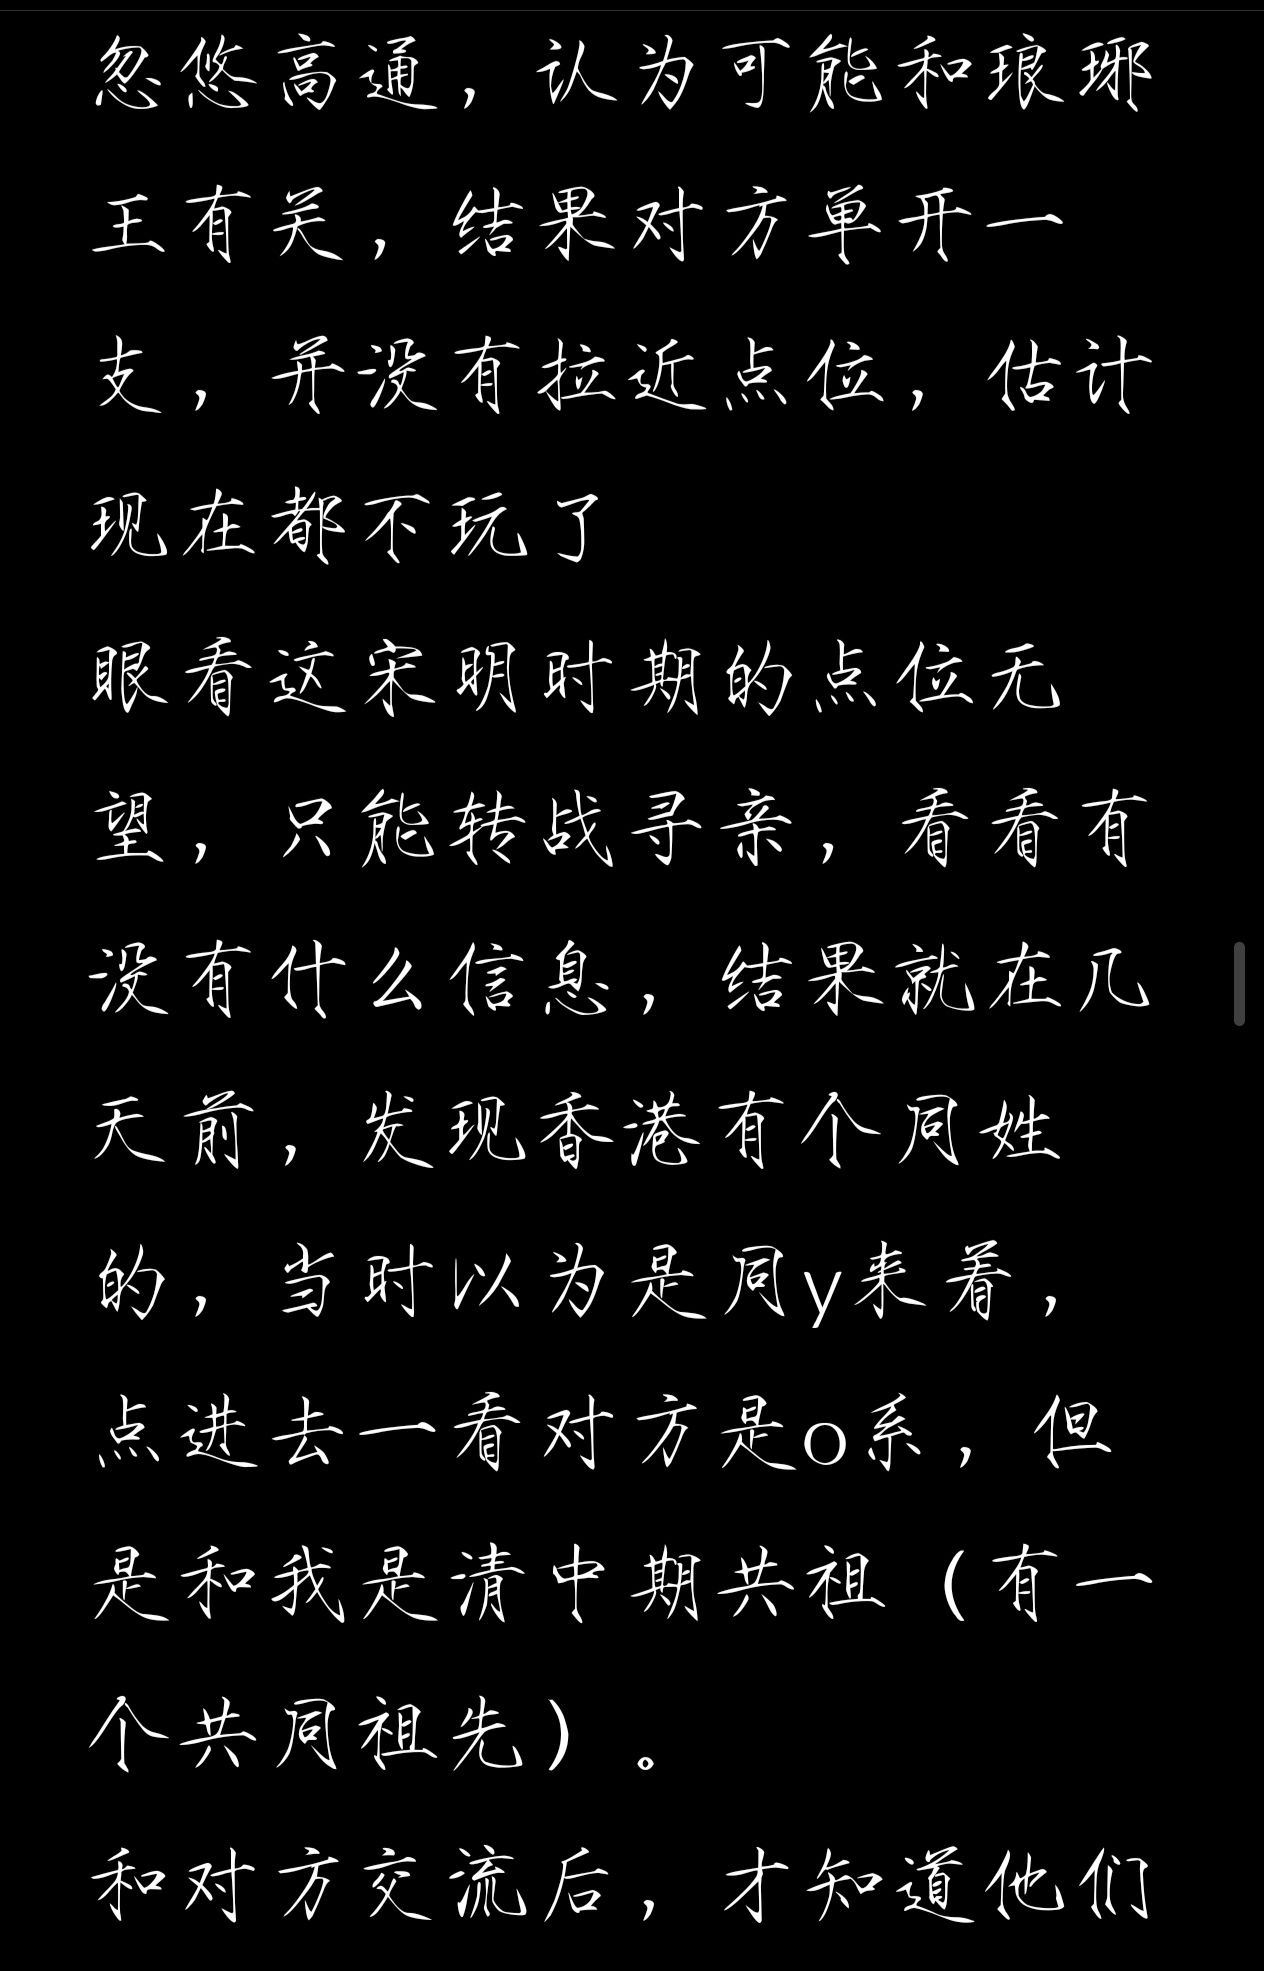 忽悠高通，认为可能和琅琊
王有关，结果对方单开一
支，并没有拉近点位，估计
现在都不玩了
眼看这宋明时期的点位无
望，只能转战寻亲，看看有
没有什么信息，结果就在几
天前，发现香港有个同姓
的，当时以为是同y来着，
点进去一看对方是o系，但
是和我是清中期共祖（有一
个共同祖先）。
和对方交流后，才知道他们